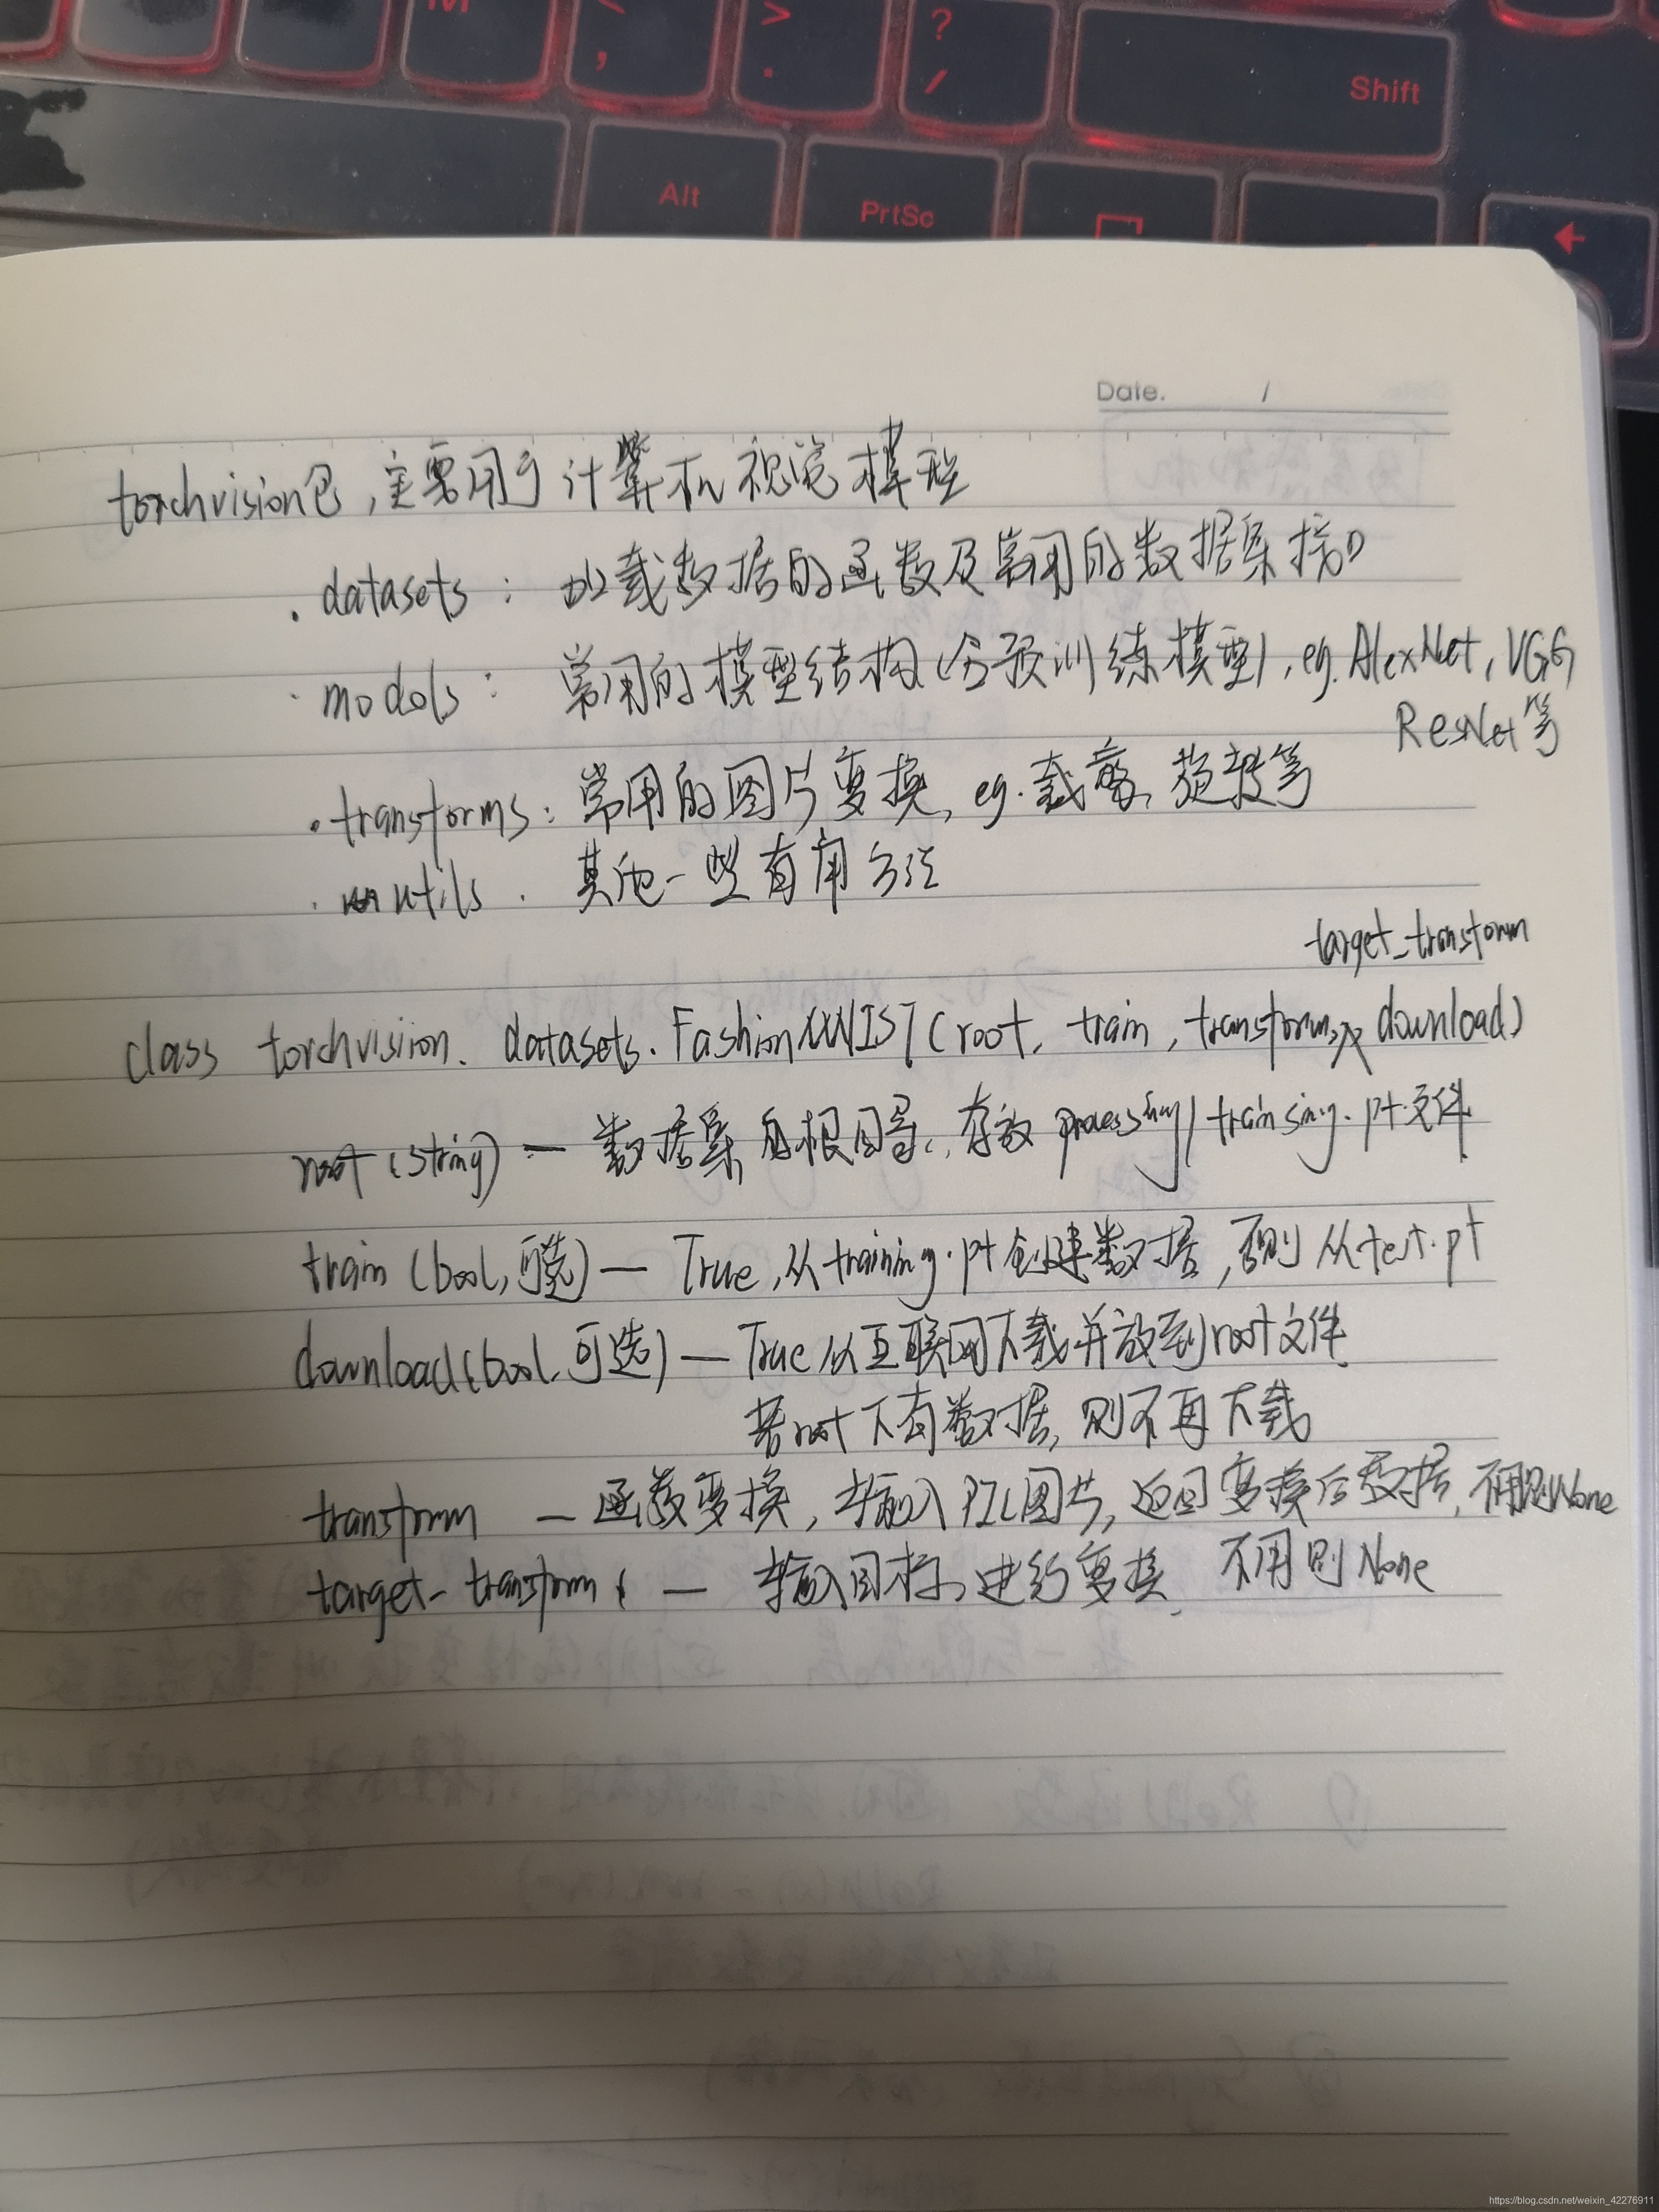 M
<
,
>
.
?
/
Shift
Alt
PrtSc
←
Date. /
torchvision包,主要用于计算机视觉模型
· datasets: 加载数据的函数及常用的数据集接口
· models: 常用的模型结构(含预训练模型), eg. AlexNet, VGG,
ResNet等
· transforms: 常用的图片变换, eg. 裁剪、旋转等
· utils. 其他一些有用方法
target_transform
class torchvision. datasets. FashionMNIST (root, train, transform, download)
root (string) — 数据集的根目录, 存放 processing/ training.pt文件
train (bool, 可选) — True, 从training.pt创建数据, 否则从test.pt
download (bool, 可选) — True 从互联网下载并放到root文件
若root下有数据, 则不再下载
transform — 函数变换, 输入PIL图片, 返回变换后数据, 不用则None
target-transform — 输入目标, 进行变换, 不用则None
https://blog.csdn.net/weixin_42276911